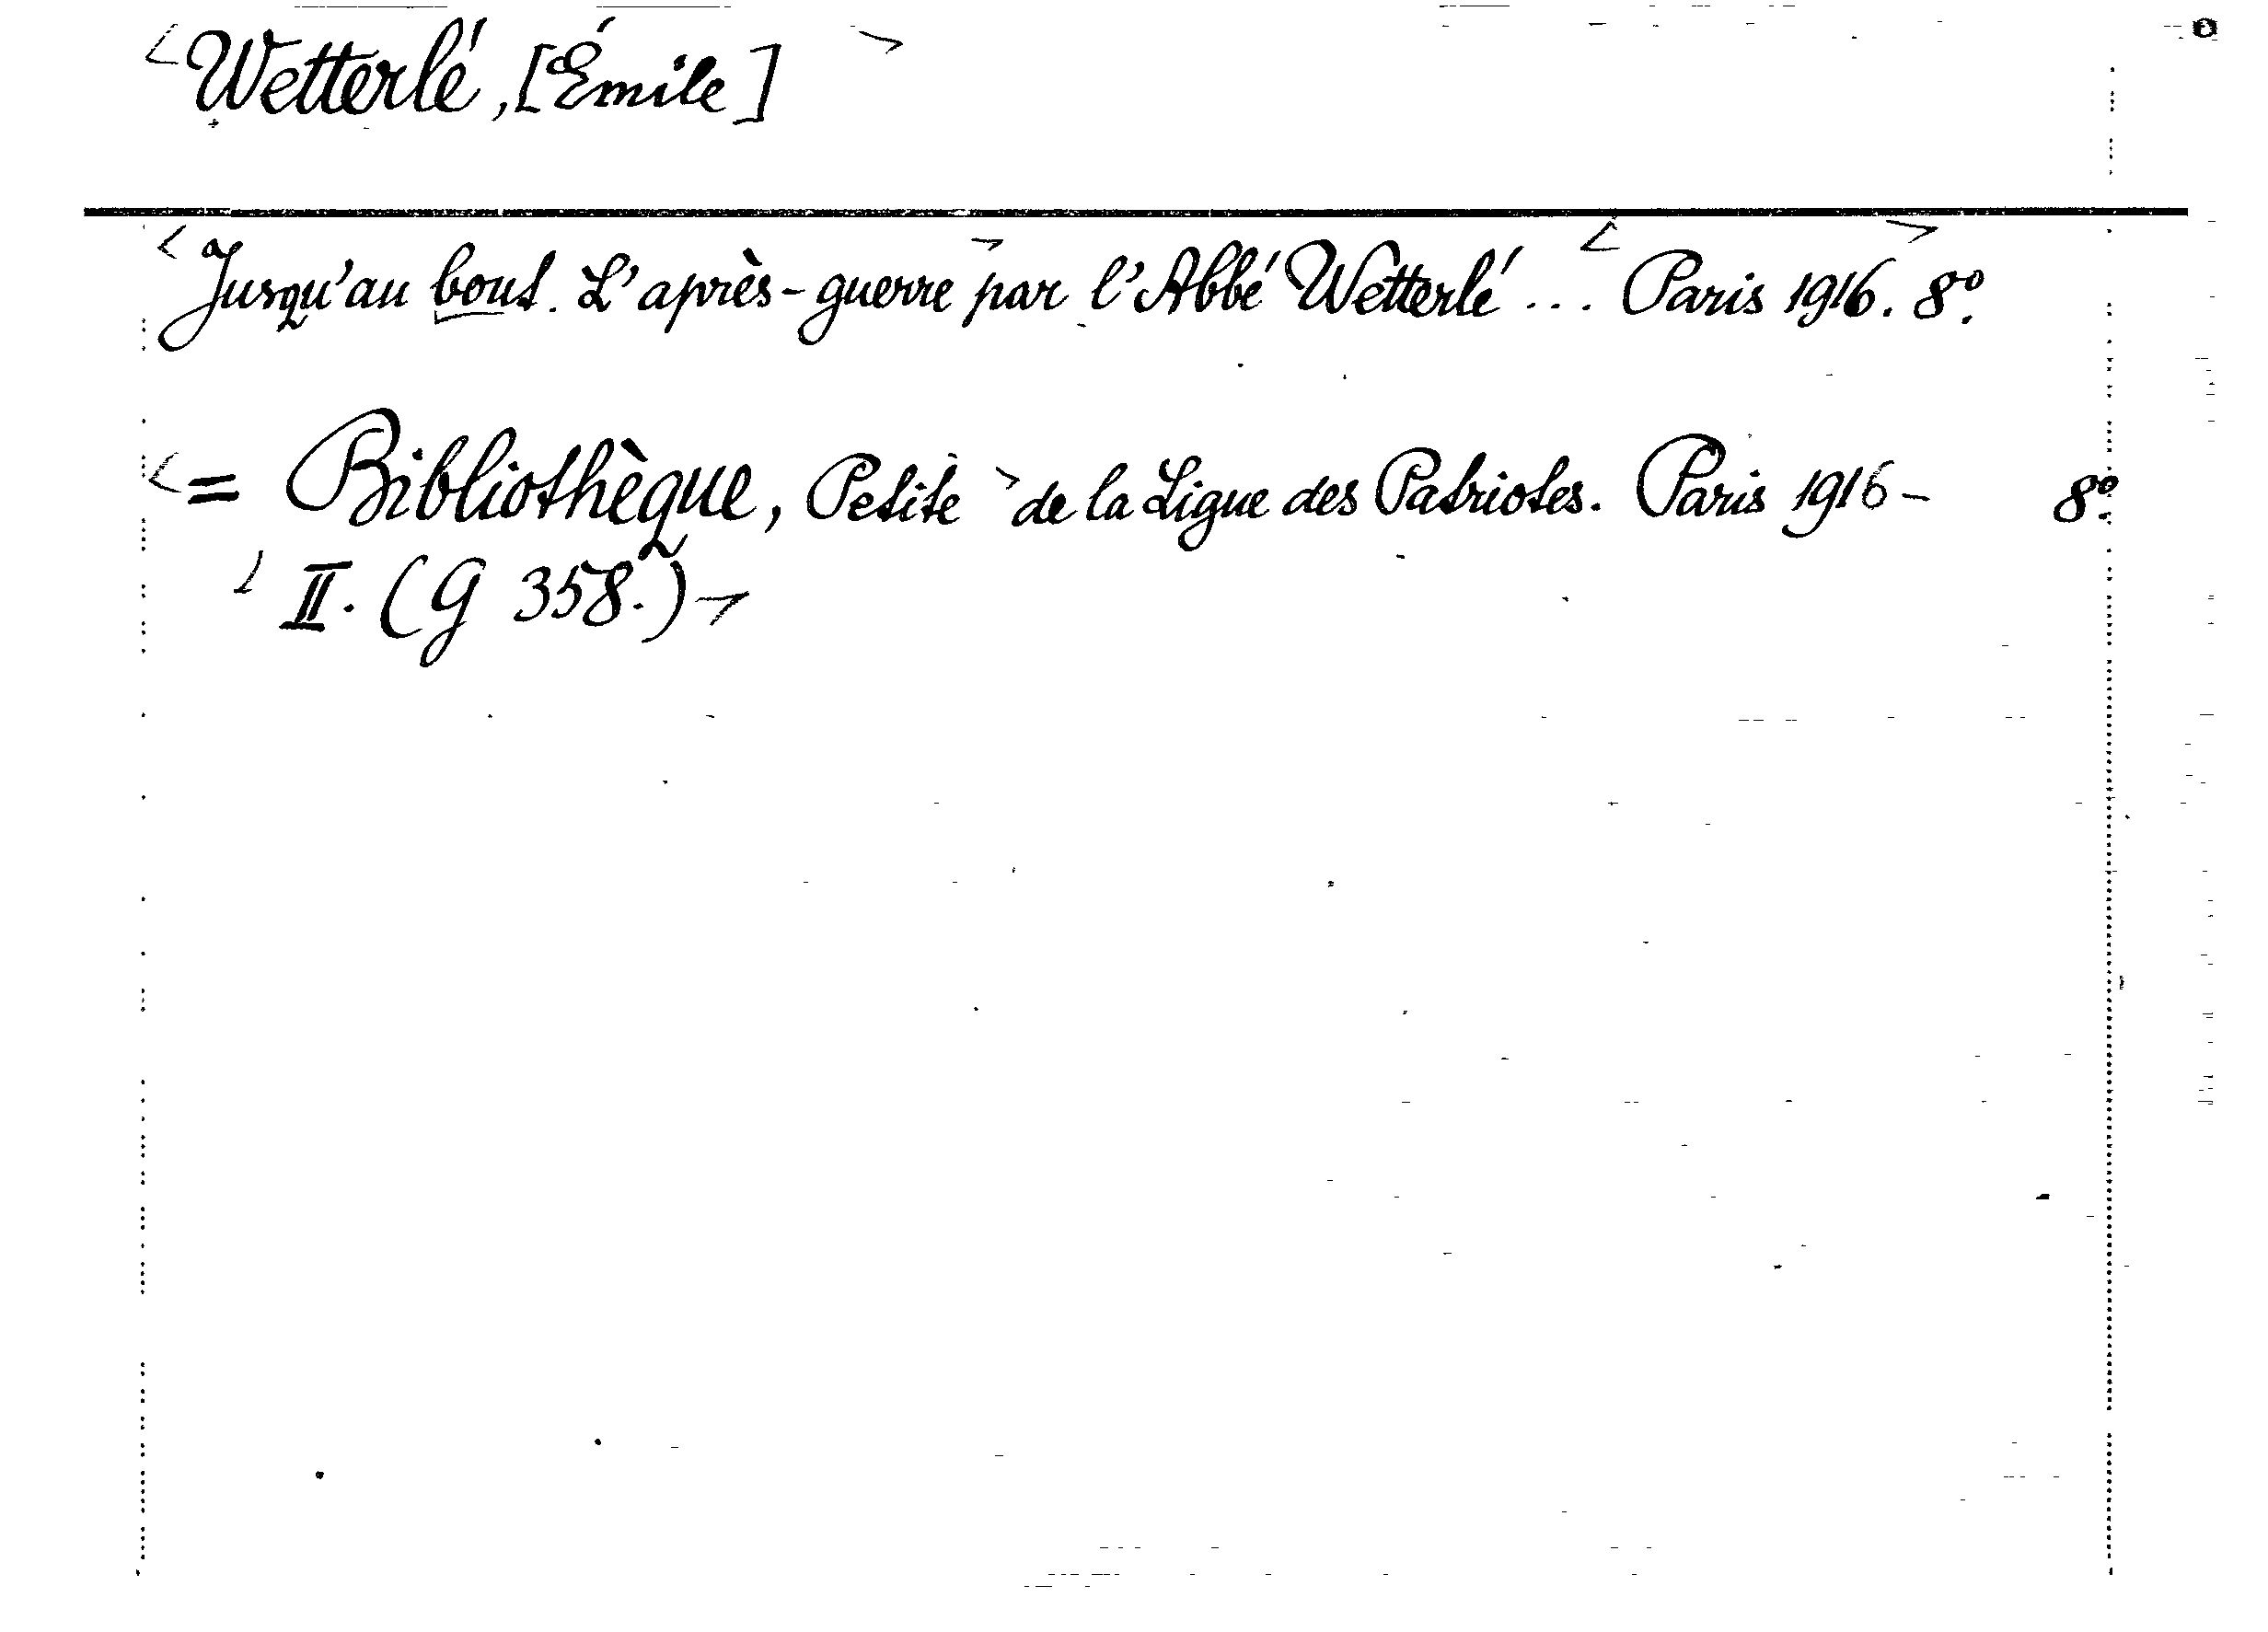 Wetterlé, [Émile]
Jusqu'au bout. L'après-guerre par l'Abbé Wetterlé ... Paris 1916. 8º.
= Bibliothèque, Petite de la Ligue des Patriotes. Paris 1916- 8º.
II. (G 358.)